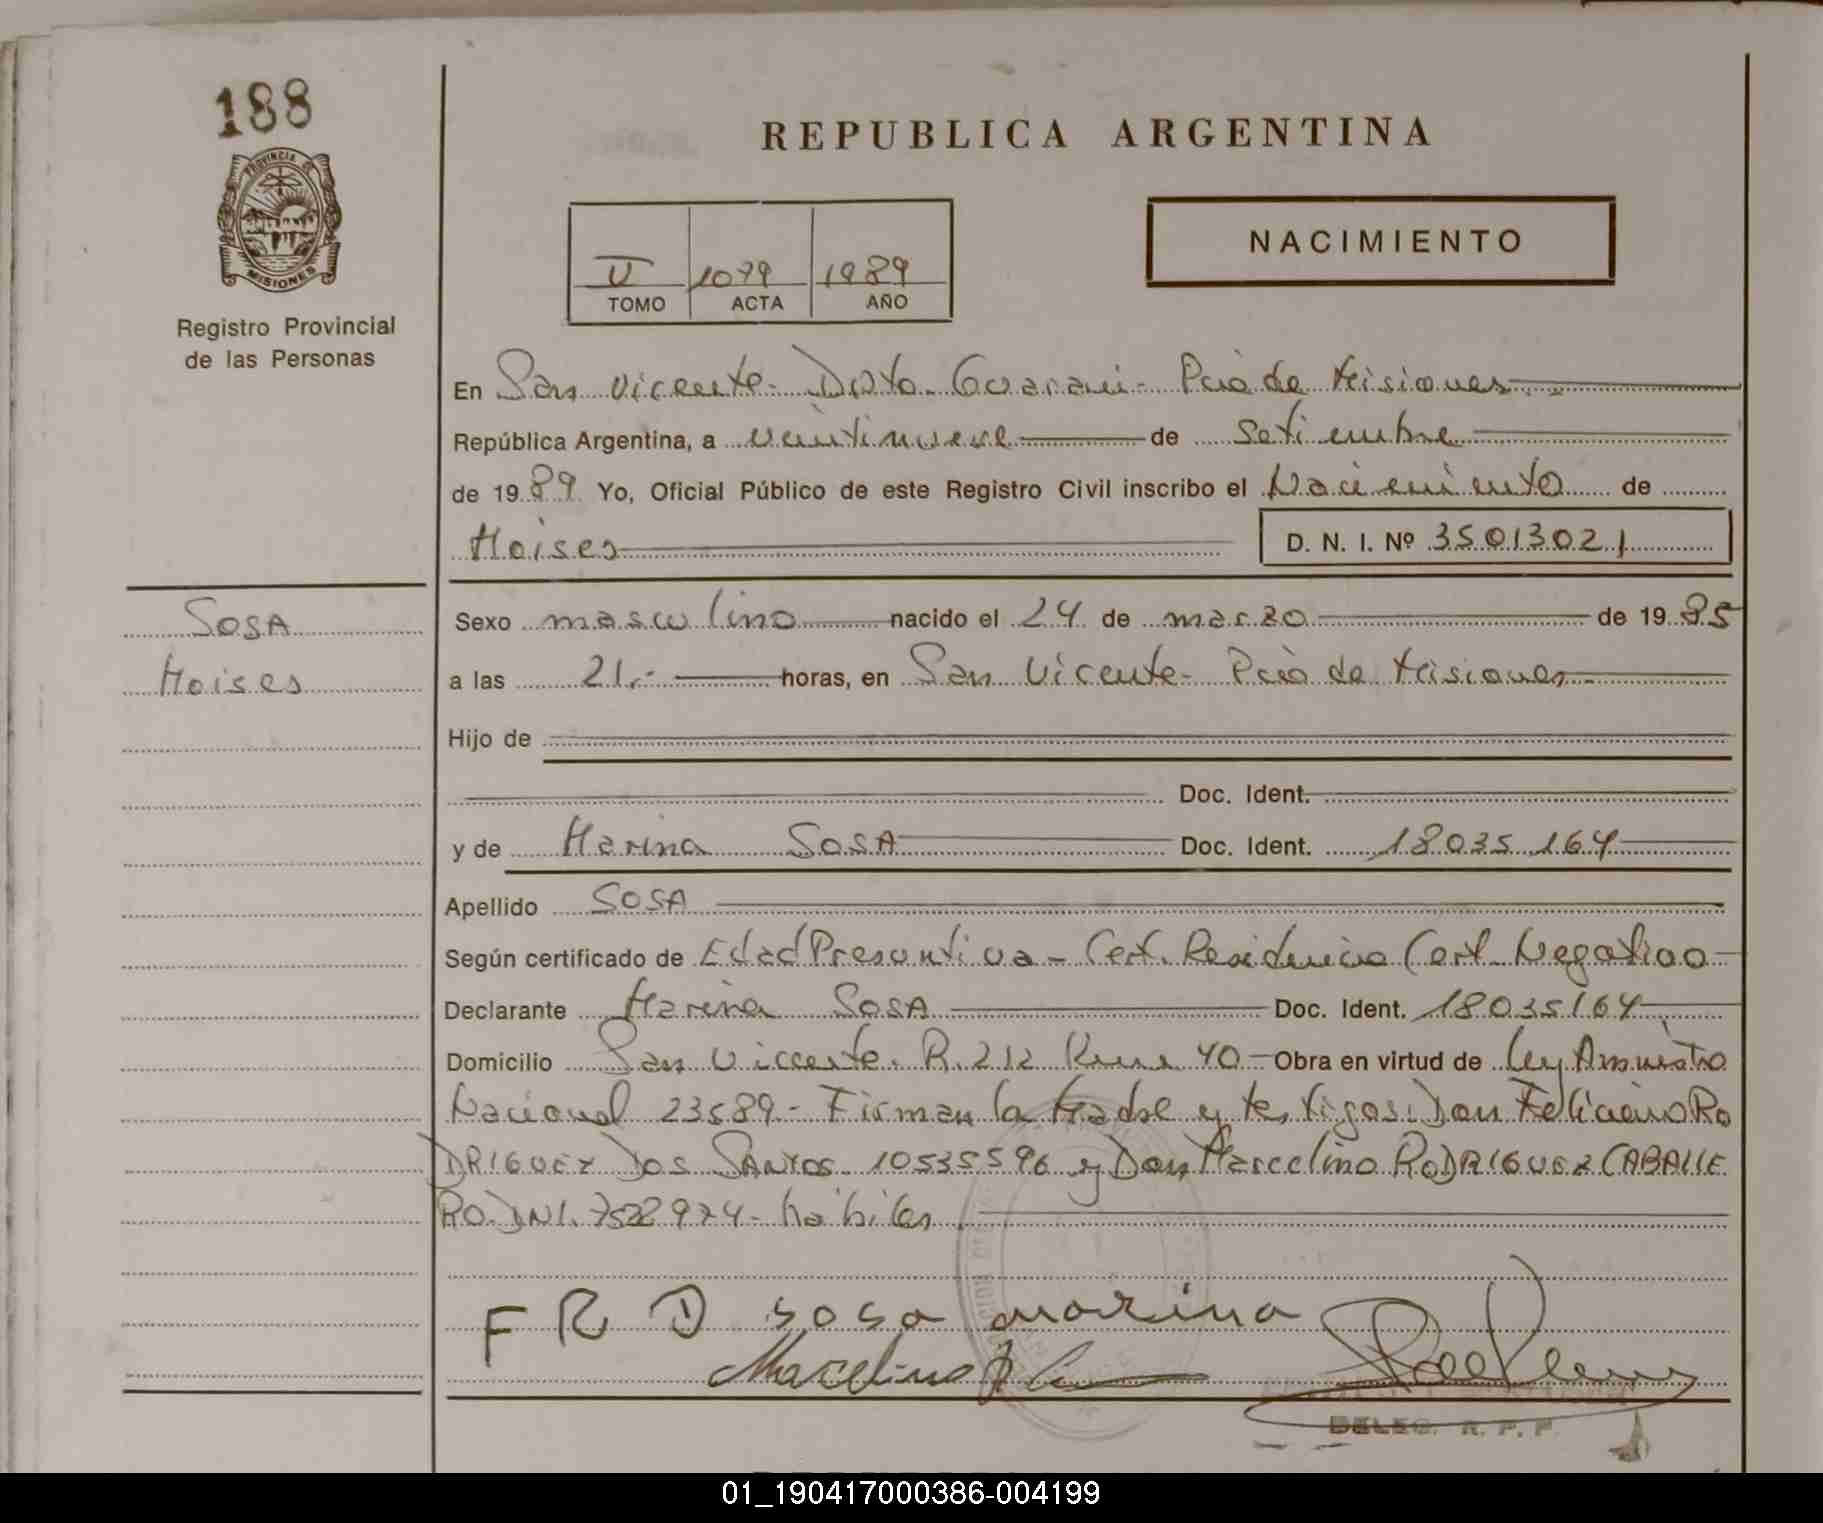 188
REPUBLICA ARGENTINA
PROVINCIA DE
MISIONES
Registro Provincial
de las Personas
NACIMIENTO
1079 1989
TOMO ACTA AÑO
En San Vicente- Dpto. Guarani- Pcia de Misiones
República Argentina, a veintinueve de Setiembre
de 1989 Yo, Oficial Público de este Registro Civil inscribo el Nacimiento de
Moises D. N. I. Nº 35013021
SOSA
Moises
Sexo masculino nacido el 24 de marzo de 1985
a las 21.- horas, en San Vicente- Pcia de Misiones
Hijo de
Doc. Ident.
y de Marina SOSA Doc. Ident. 18035164
Apellido SOSA
Según certificado de Edad Presuntiva - Cert. Residencia Cert. Negativo
Declarante Marina SOSA Doc. Ident. 18035164
Domicilio San Vicente. R. 212 40 Obra en virtud de Ley Amnistia
Nacional 23589.- Firman la Madre y testigos: Don Feliciano RO
DRIGUEZ DOS SANTOS 10535596 y Don Marcelino RODRIGUEZ CABALLE
RO. DNI. 7528974- habiles
F R D sosa marina
Marcelino
DELEG. R. P. P.
01_190417000386-004199